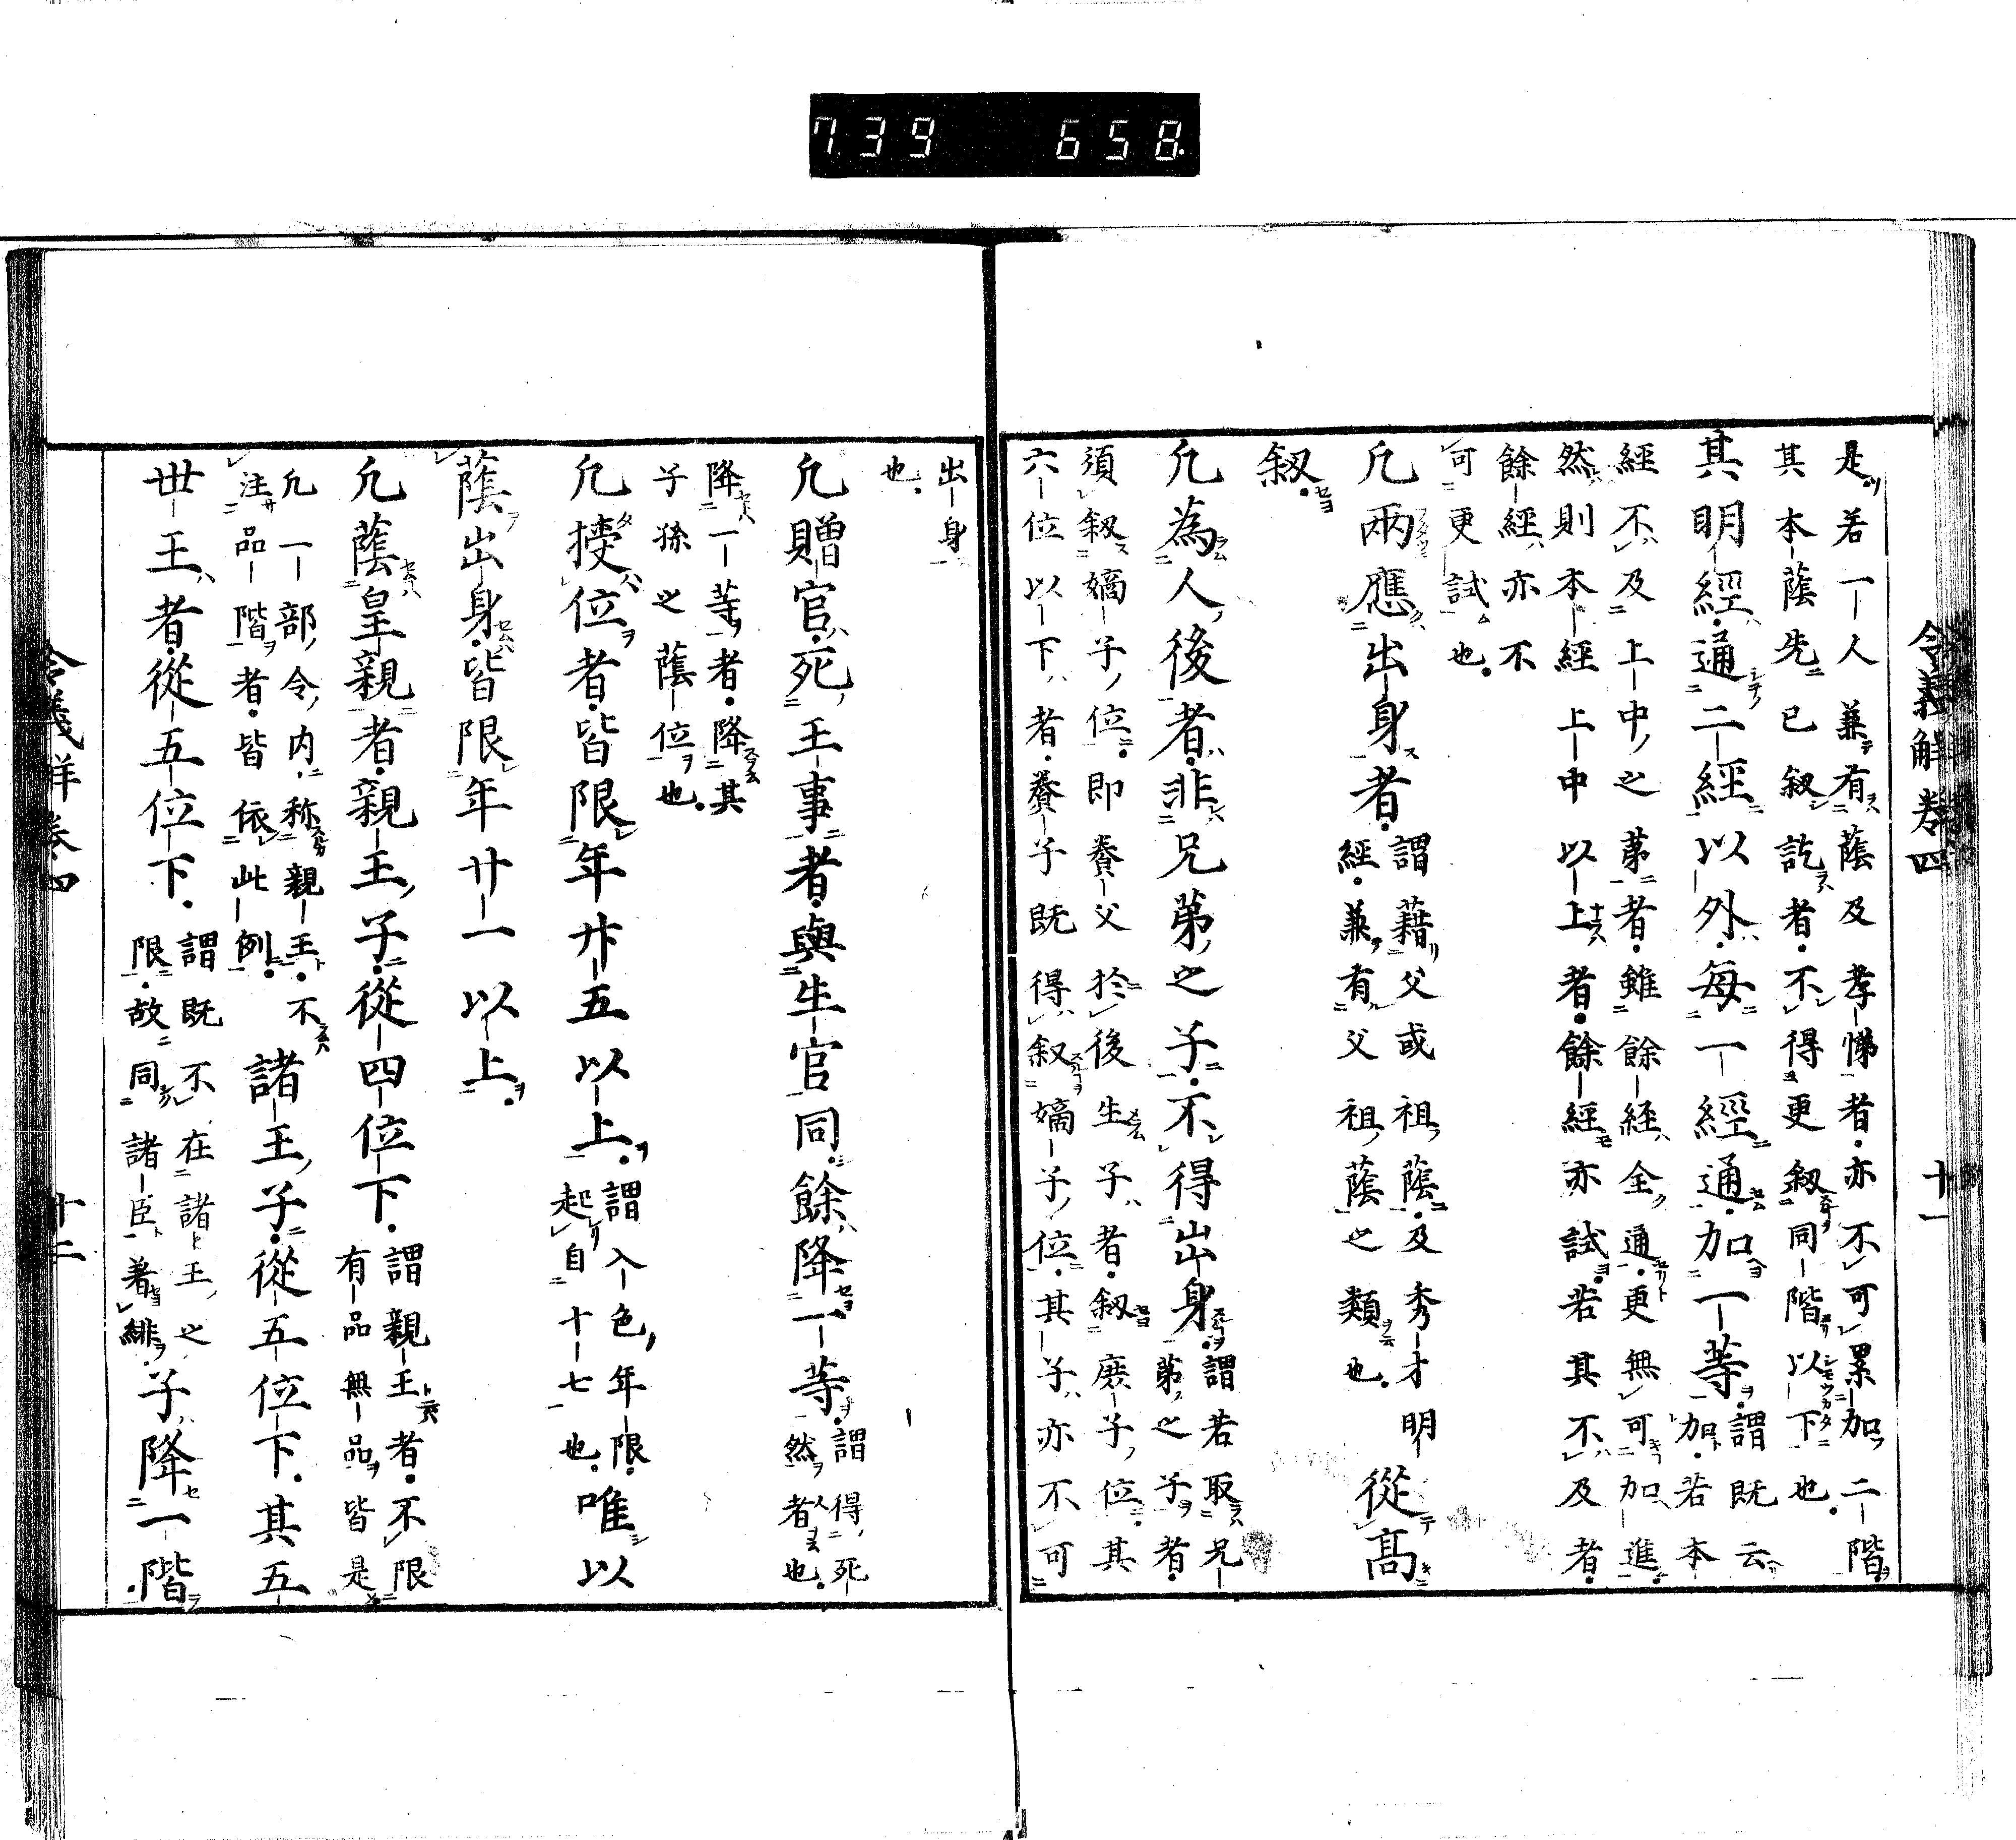 739 658
令義解卷四 十一
是若一人兼有蔭及孝悌者亦不可累加二階
其本蔭先已叙訖者不得更叙同階以下也
其明經通二經以外每一經通加一等謂既云
加若本
經不及上中之第者雖餘経全通更無可加進
然則本經上中以上者餘經亦試若其不及者
餘經亦不
可更試也
凡兩應出身者謂藉父或祖蔭及秀才明
經兼有父祖蔭之類也從高
叙
凡為人後者非兄弟之子不得出身謂若取兄
弟之子者
須叙嫡子位即養父於後生子者叙庶子位其
六位以下者養子既得叙嫡子位其子亦不可
出身
也
凡贈官死王事者與生官同餘降一等謂得死
然者也
降一等者降其
子孫之蔭位也
凡授位者皆限年廿五以上謂入色年限
起自十七也唯以
蔭出身皆限年廿一以上
凡蔭皇親者親王子從四位下謂親王者不限
有品無品皆是
凡一部令内称親王不
注品階者皆依此例諸王子從五位下其五
世王者從五位下謂既不在諸王之
限故同諸臣著緋子降一階
令義解卷四 十二